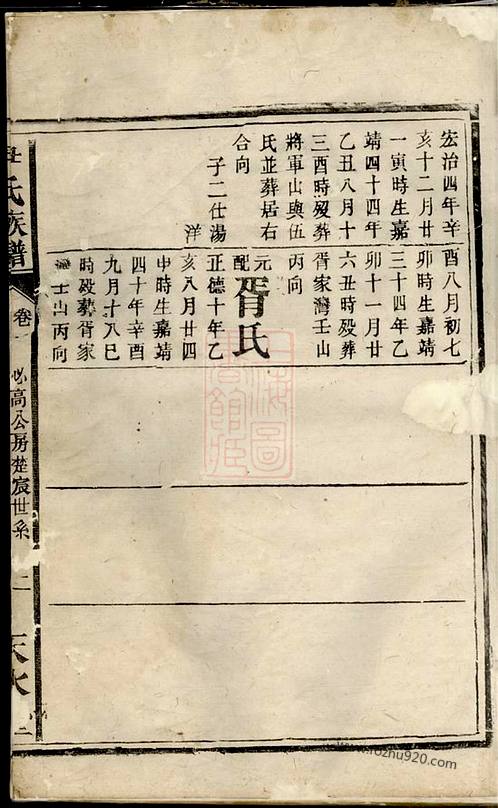 宏治四年辛
亥十二月廿
一寅時生嘉
靖四十四年
乙丑八月十
三酉時殁葬
將軍山與伍
氏並葬居右
合向
子二仕湯
洋
酉八月初七
卯時生嘉靖
三十四年乙
卯十一月廿
六丑時殁葬
胥家灣壬山
丙向
元配胥氏
正德十年乙
亥八月廿四
申時生嘉靖
四十年辛酉
九月十八巳
時殁葬胥家
灣壬山丙向
氏族譜
卷
必高公房楚宸世系
二
天水
二
上海圖書館藏
www.rozhu920.com